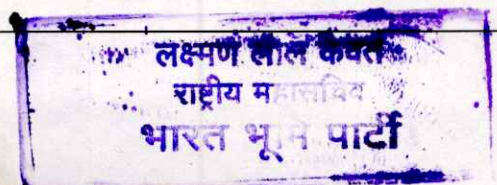 लक्ष्मण लाल केवट
राष्ट्रीय महासचिव
भारत भूमि पार्टी